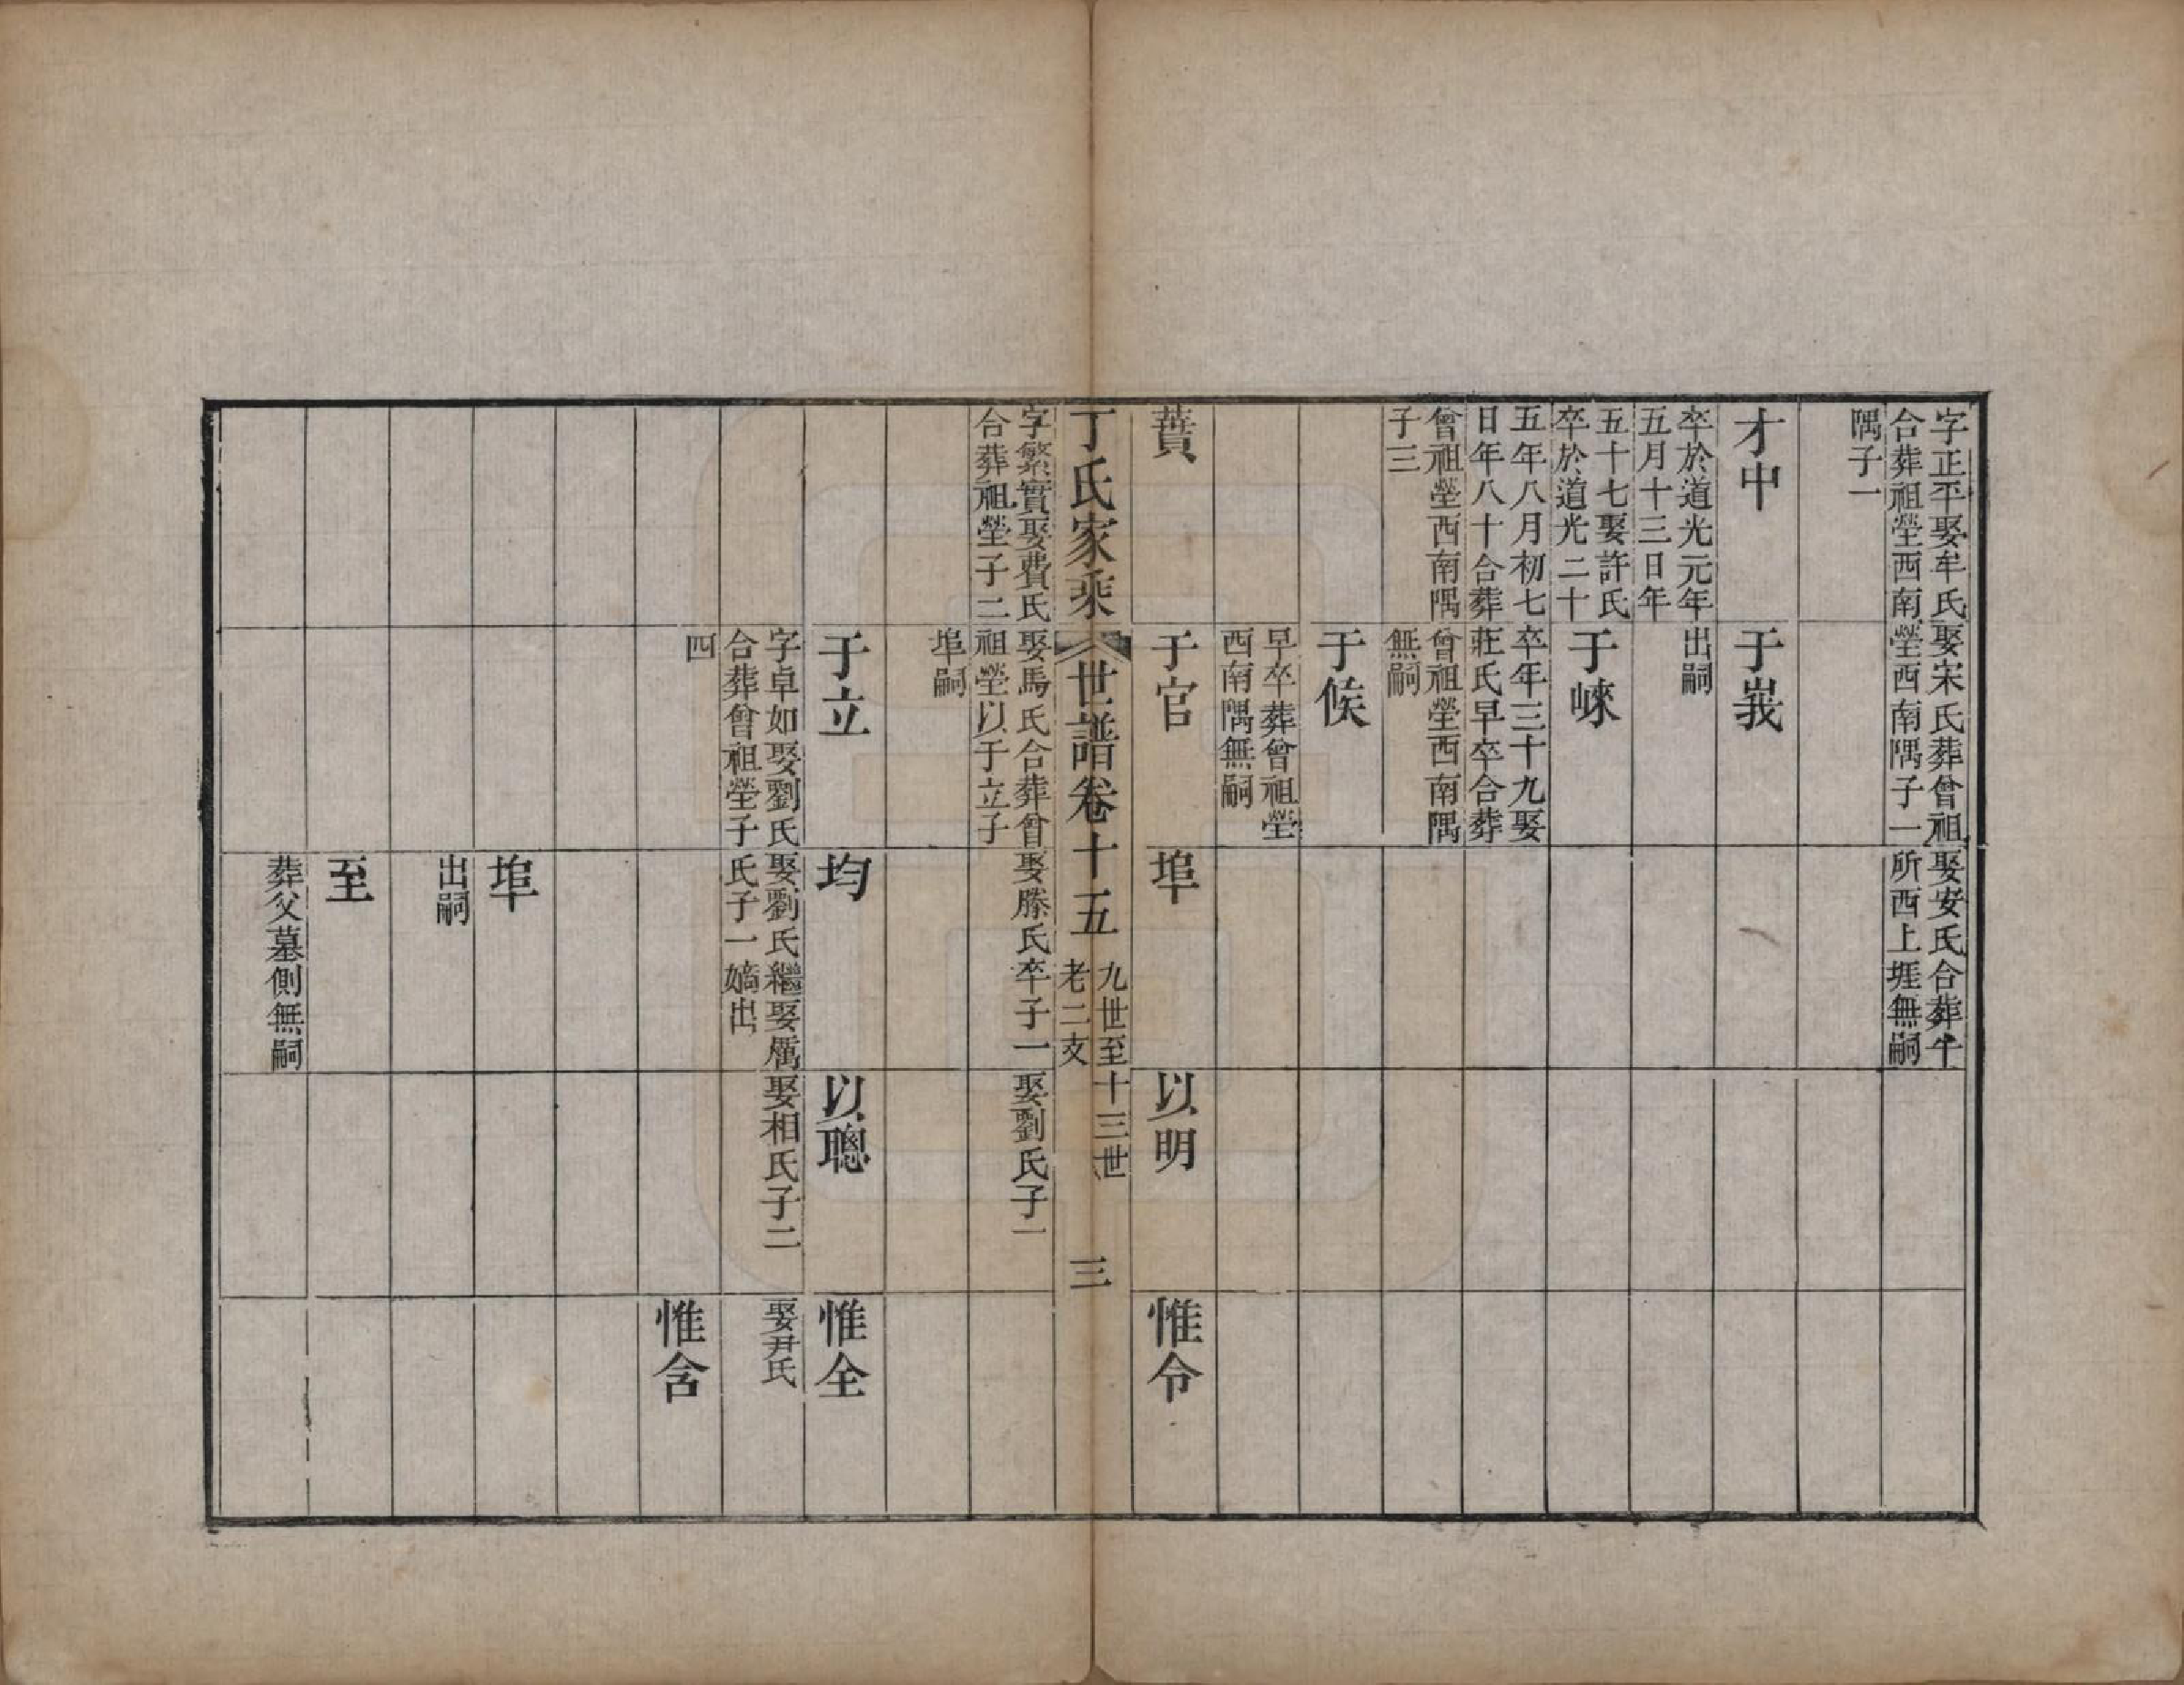 字正平娶牟氏
合葬祖塋西南
隅子一
娶宋氏葬曾祖
塋西南隅子一
娶安氏合葬牛
所西上堐無嗣
才中
卒於道光元年
五月十三日年
五十七娶許氏
卒於道光二十
五年八月初七
日年八十合葬
曾祖塋西南隅
子三
于峩
出嗣
于崍
卒年三十九娶
莊氏早卒合葬
曾祖塋西南隅
無嗣
于候
早卒葬曾祖塋
西南隅無嗣
蕡
于官
埠
以明
惟令
丁氏家乘
世譜卷十五
九世至十三世
老二支
三
字繁實娶費氏
合葬祖塋子二
娶馬氏合葬曾
祖塋以于立子
埠嗣
娶滕氏卒子一
娶劉氏子一
于立
均
以聰
惟全
字卓如娶劉氏
合葬曾祖塋子
四
娶劉氏繼娶厲
氏子一嫡出
娶相氏子二
娶尹氏
惟含
埠
出嗣
至
葬父墓側無嗣